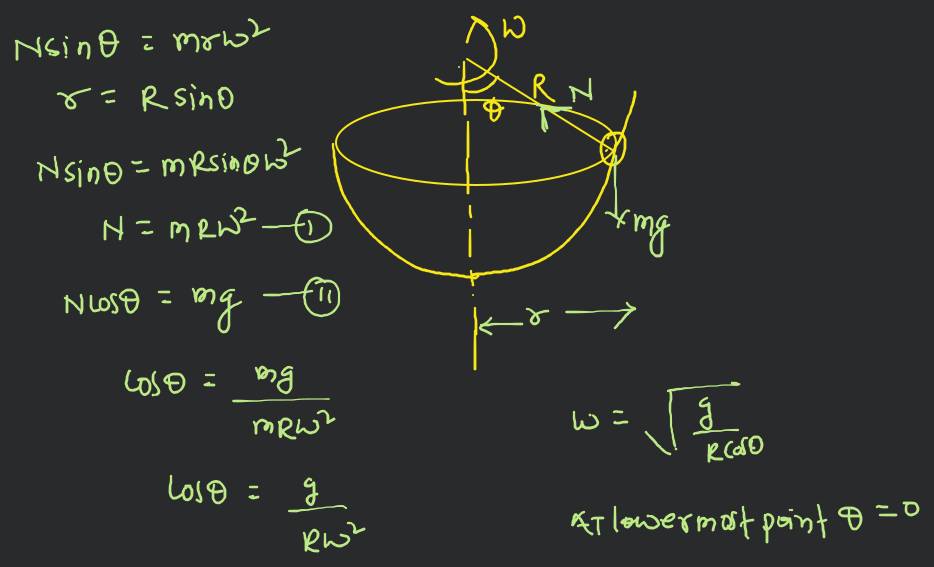 Nsinθ = mrω²
r = R sinθ
Nsinθ = mRsinθω²
N = mRω² — (I)
Ncosθ = mg — (II)
cosθ = mg / mRω²
cosθ = g / Rω²
ω
R
N
θ
mg
r
ω = √(g / Rcosθ)
AT lowermost point θ = 0